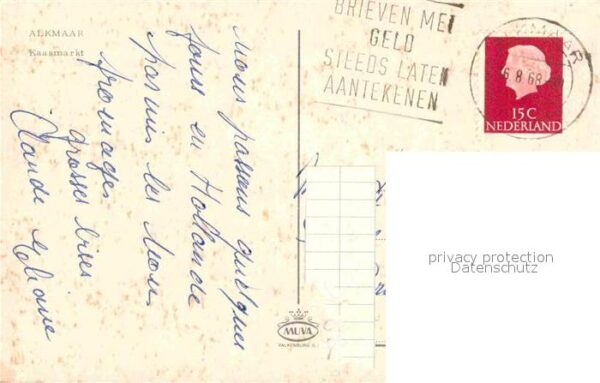 ALKMAAR
Kaasmarkt
BRIEVEN MET
GELD
STEEDS LATEN
AANTEKENEN
ALKMAAR
6.8.68
15 C
NEDERLAND
Nous passons quelques
jours en Hollande
parmi les bons
fromages.
Grosses bises
Claude Eliane
MUVA
VALKENBURG (L.)
privacy protection
Datenschutz